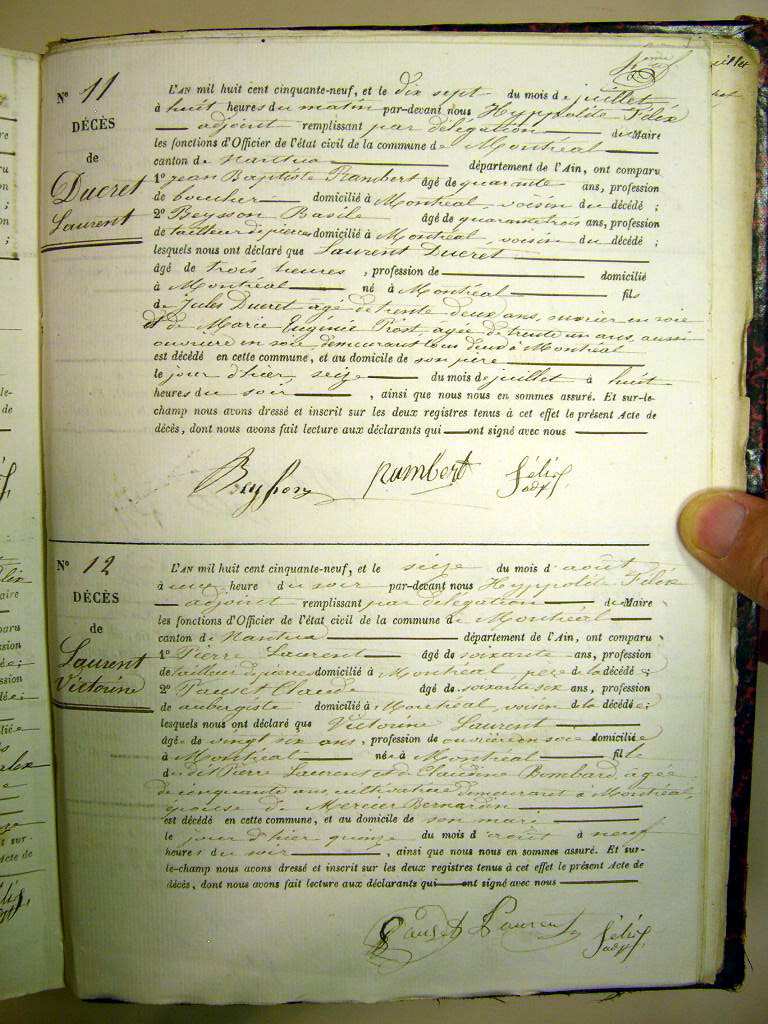 N° 11
DÉCÈS
de
Ducret
Laurent
L'AN mil huit cent cinquante-neuf, et le dix sept du mois de juillet
à huit heures du matin par-devant nous Hyppolite Félix
adjoint remplissant par délégation de Maire
les fonctions d'Officier de l'état civil de la commune de Montréal
canton de Nantua département de l'Ain, ont comparu
1° Jean Baptiste Rambert âgé de quarante ans, profession
de boucher domicilié à Montréal, voisin du décédé ;
2° Beysson Basile âgé de quarante trois ans, profession
de tailleur de pierres domicilié à Montréal, voisin du décédé ;
lesquels nous ont déclaré que Laurent Ducret
âgé de trois heures , profession de domicilié
à Montréal né à Montréal fils
de Jules Ducret agé de trente deux ans, ouvrier en soie
et de Marie Eugénie Prost agée de trente un ans, aussi
ouvrière en soie, demeurant tous deux à Montréal
est décédé en cette commune, et au domicile de son père
le jour d'hier, seize du mois de juillet à huit
heures du soir , ainsi que nous nous en sommes assuré. Et sur-le-
champ nous avons dressé et inscrit sur les deux registres tenus à cet effet le présent Acte de
décès, dont nous avons fait lecture aux déclarants qui ont signé avec nous
Beysson Rambert Félix
adjt
N° 12
DÉCÈS
de
Laurent
Victorine
L'AN mil huit cent cinquante-neuf, et le seize du mois d'août
à une heure du soir par-devant nous Hyppolite Félix
adjoint remplissant par délégation de Maire
les fonctions d'Officier de l'état civil de la commune de Montréal
canton de Nantua département de l'Ain, ont comparu
1° Pierre Laurent âgé de soixante ans, profession
de tailleur de pierres domicilié à Montréal, père de la décédée ;
2° Pauset Claude âgé de soixante six ans, profession
de aubergiste domicilié à Montréal, voisin de la décédée ;
lesquels nous ont déclaré que Victorine Laurent
âgée de vingt six ans, profession de ouvrière en soie domiciliée
à Montréal née à Montréal fille
de dit Pierre Laurent et de Claudine Bombard, agée
de cinquante ans, cultivatrice demeurant à Montréal,
épouse de Mercier Bernardin
est décédée en cette commune, et au domicile de son mari
le jour d'hier quinze du mois d'août à neuf
heures du soir , ainsi que nous nous en sommes assuré. Et sur-
le-champ nous avons dressé et inscrit sur les deux registres tenus à cet effet le présent Acte de
décès, dont nous avons fait lecture aux déclarants qui ont signé avec nous
Pauset Laurent Félix
adjt